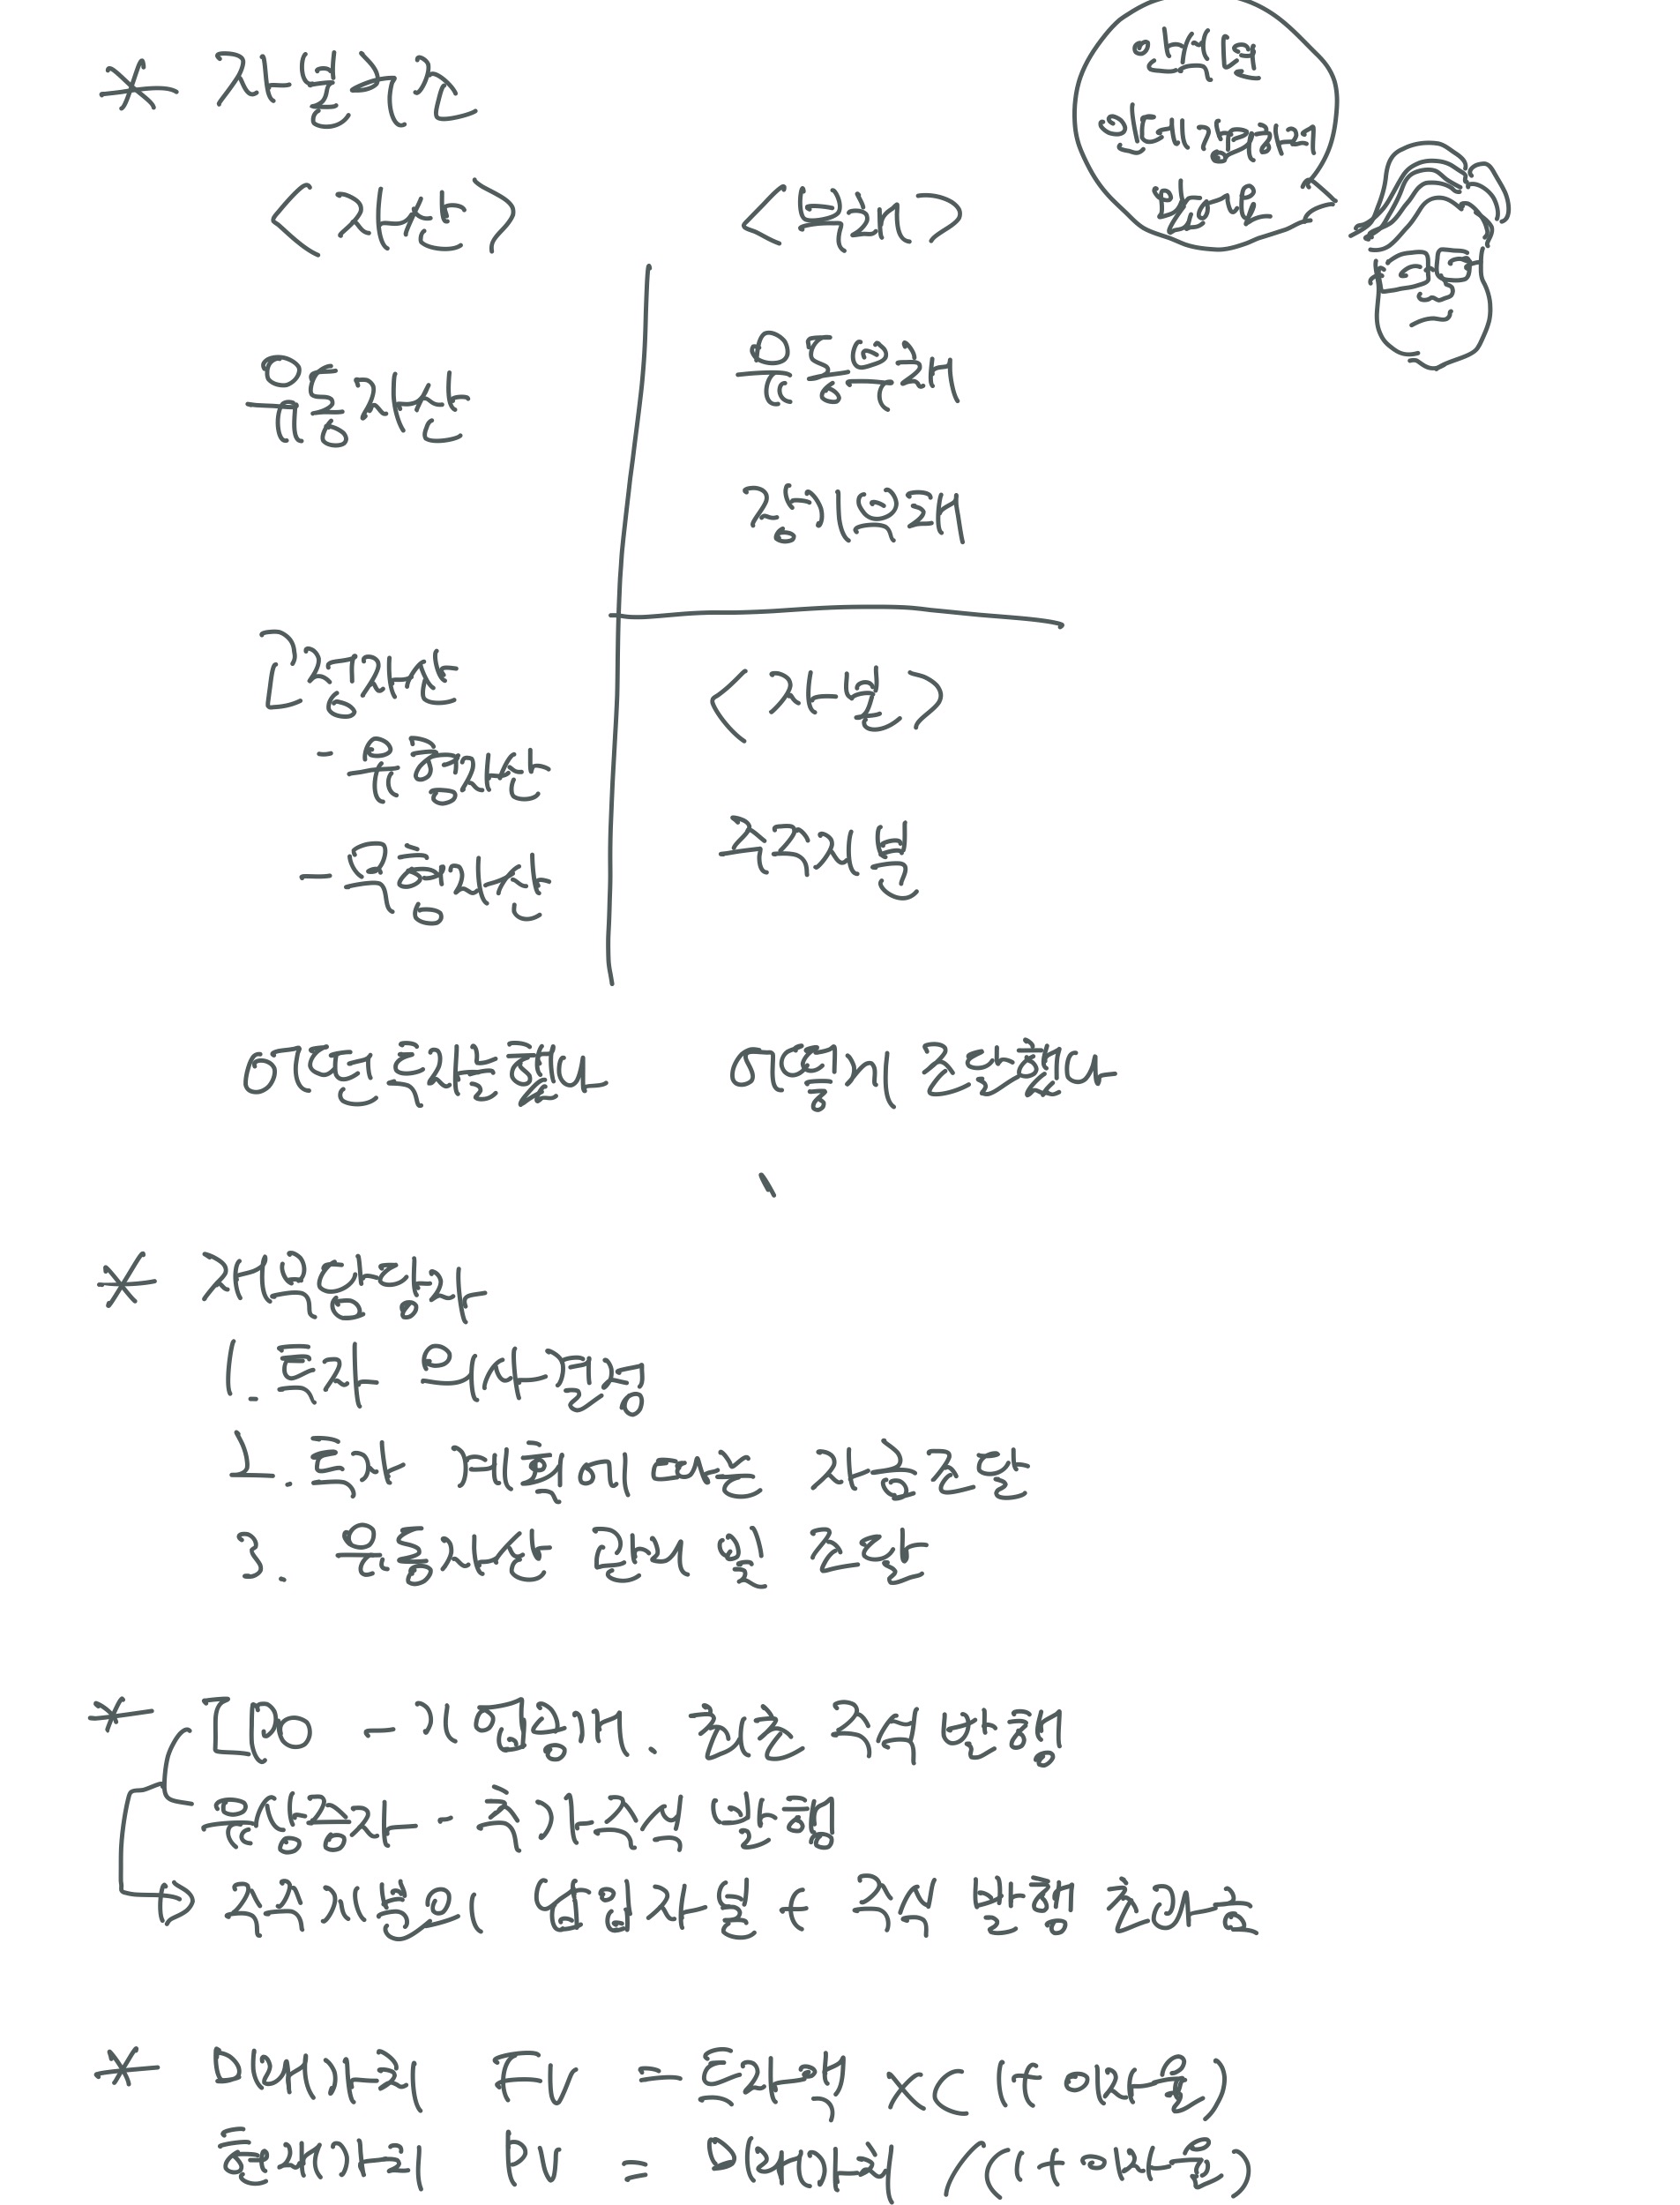 * 자본구조
<자산> <부채>
유동자산 유동부채
장기부채
고정자산 <자본>
- 유형자산
- 무형자산 주주자본
어떤 투자를 했나 어떻게 조달했나
* 재무담당자
1. 투자 의사결정
2. 투자 계획에 따른 자금조달
3. 유동자산 관리 및 조달
* IPO - 기업공개. 최초 주식 발행
유상증자 - 추가주식 발행
주주자본의 납입자본 주식 발행
* 미래가치 FV = x (1+이자율)
현재가치 PV = 미래가치 /(1+이자율)